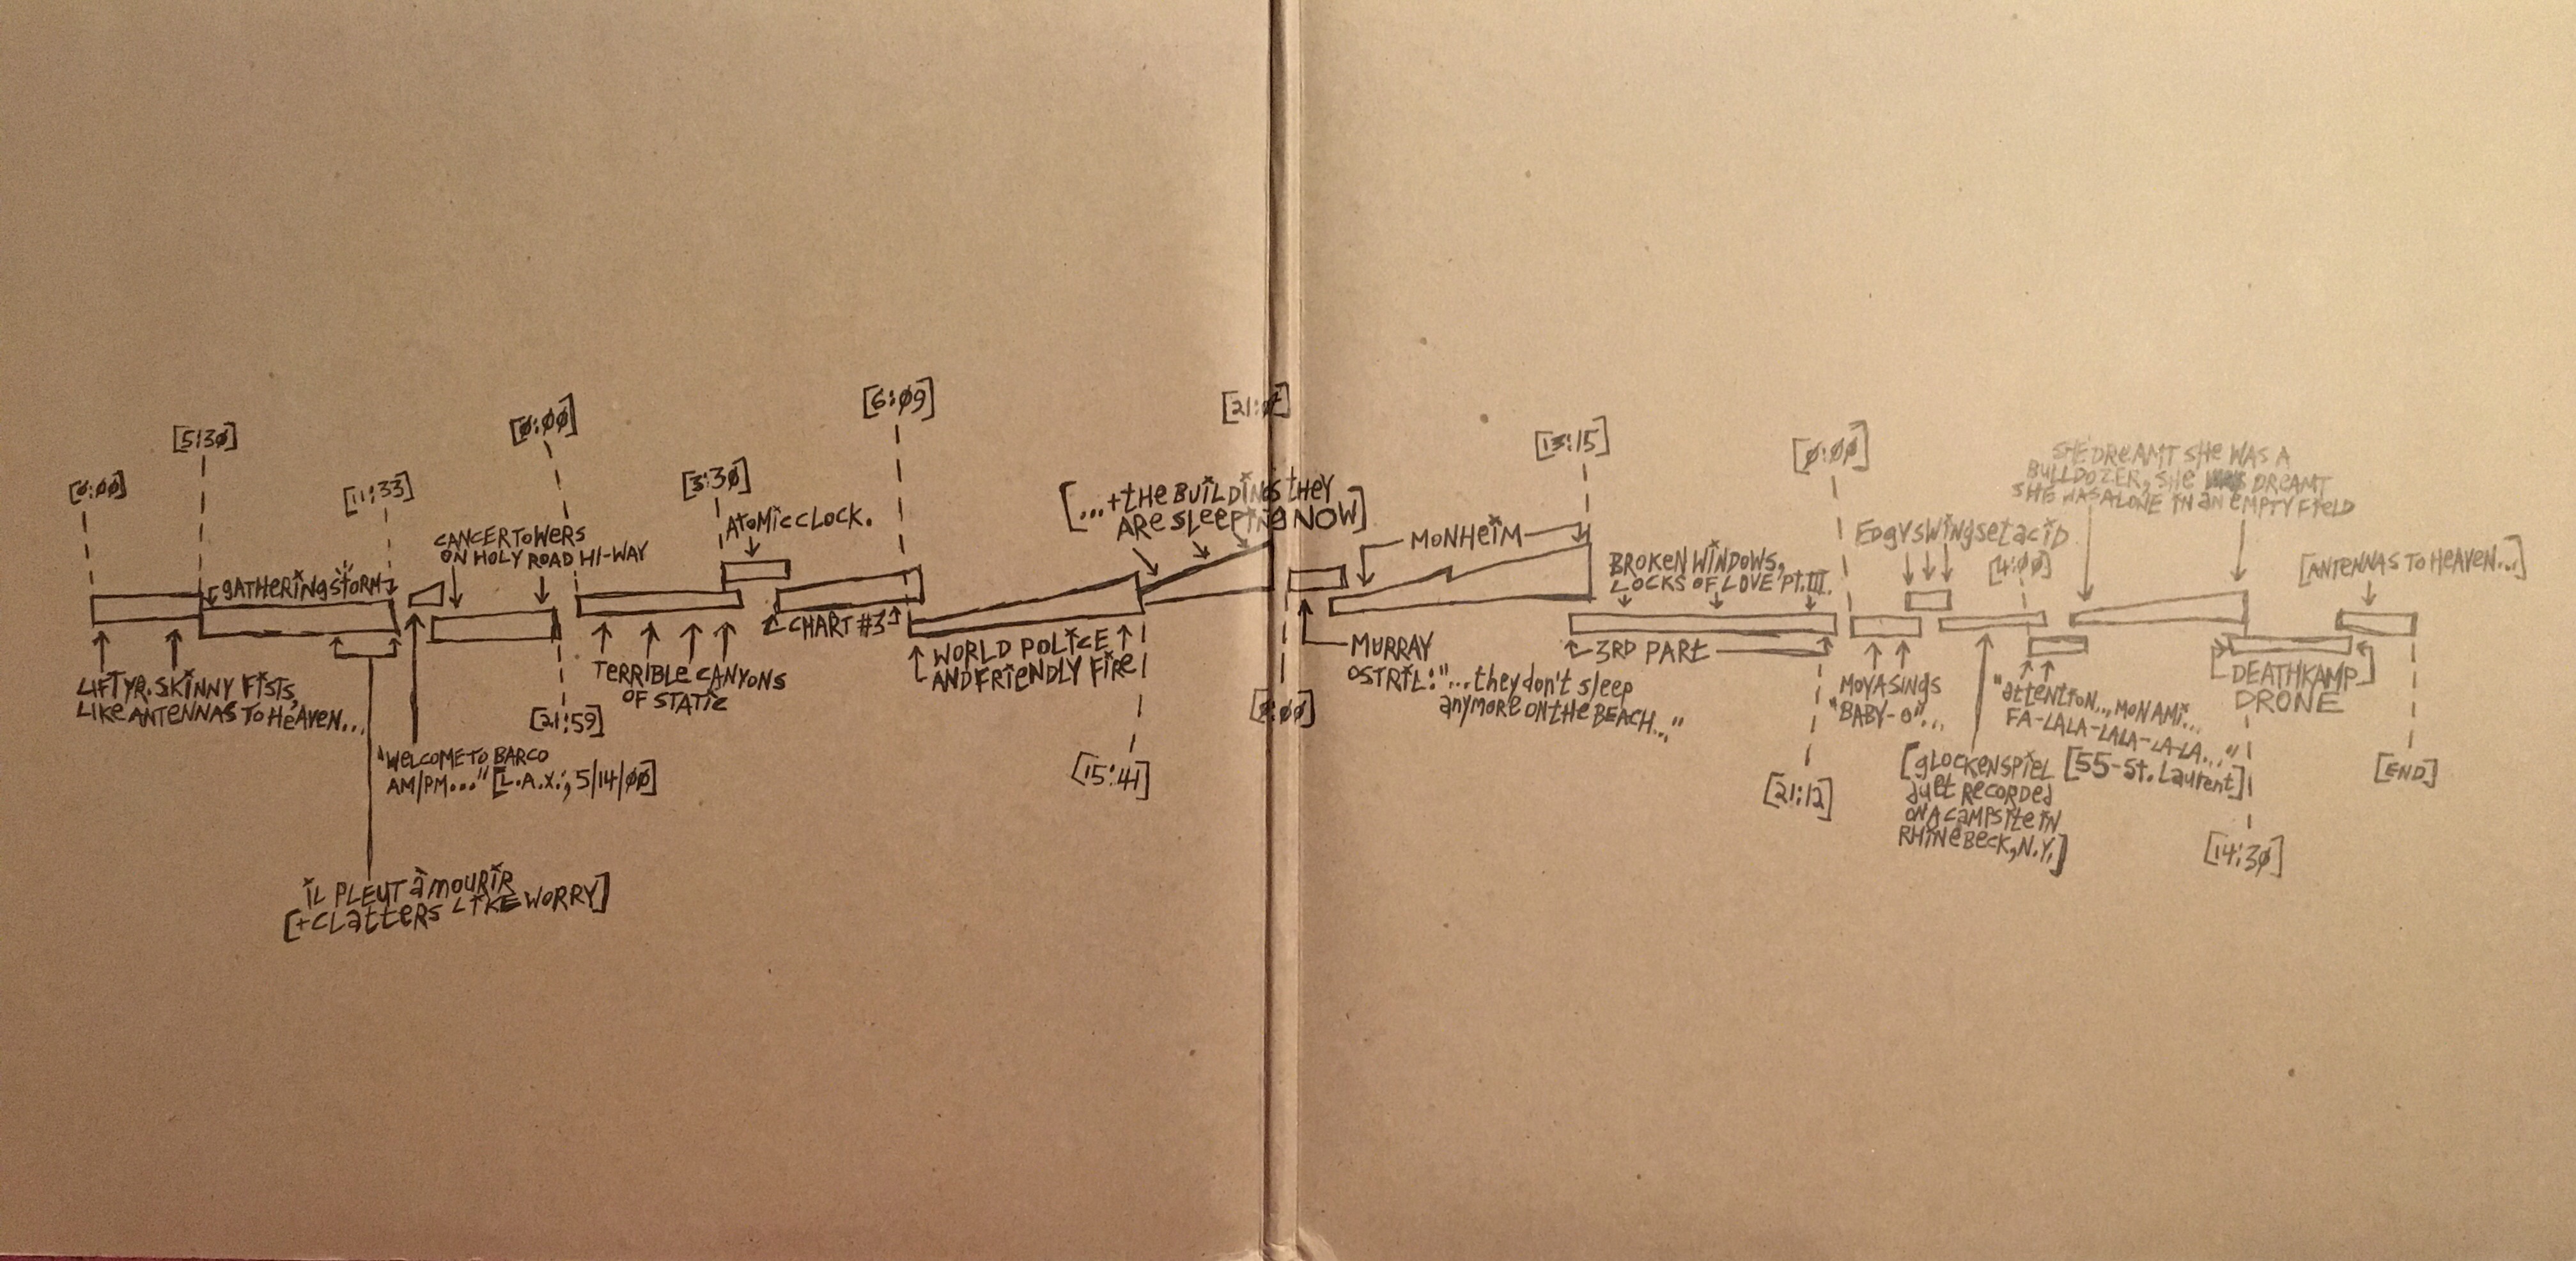 [0:00]
[5:30]
[11:33]
[0:00]
[3:30]
[6:09]
LIFT YR. SKINNY FISTS,
LIKE ANTENNAS TO HEAVEN...
gATHERiNg STORM
iL PLEUT à MOURiR
[+CLATTERS LIKE WORRY]
"WELCOME TO BARCO
AM/PM..." [L.A.X.; 5/14/00]
CANCER TOWERS
ON HOLY ROAD HI-WAY
[21:59]
TERRIBLE CANYONS
OF STATIC
ATOMIC CLOCK.
CHART #3
WORLD POLICE
AND FRIENDLY FIRE
[15:41]
[...+THE BUILDINGS THEY
ARE SLEEPING NOW]
MURRAY
OSTRIL: "...they don't sleep
anymore ON the BEACH..."
MONHEIM
[13:15]
BROKEN WINDOWS,
LOCKS OF LOVE PT. III.
3RD PART
[21:12]
[0:00]
MOYA SINGS
"BABY-O"...
EDgYSWiNgSETaciD
[gLOCKENSPiEL
duET RECORDED
ON A CAMPSITE iN
RHiNEBECK, N.Y.]
[4:00]
"attention... MON AMi...
FA-LALA-LALA-LA-LA..."
[55-St. Laurent]
SHE DREAMT SHE WAS A
BULLDOZER, SHE DREAMT
SHE WAS ALONE IN an EMPTY FiELD
[14:30]
DEATHKAMP
DRONE
[ANTENNAS TO HEAVEN...]
[END]